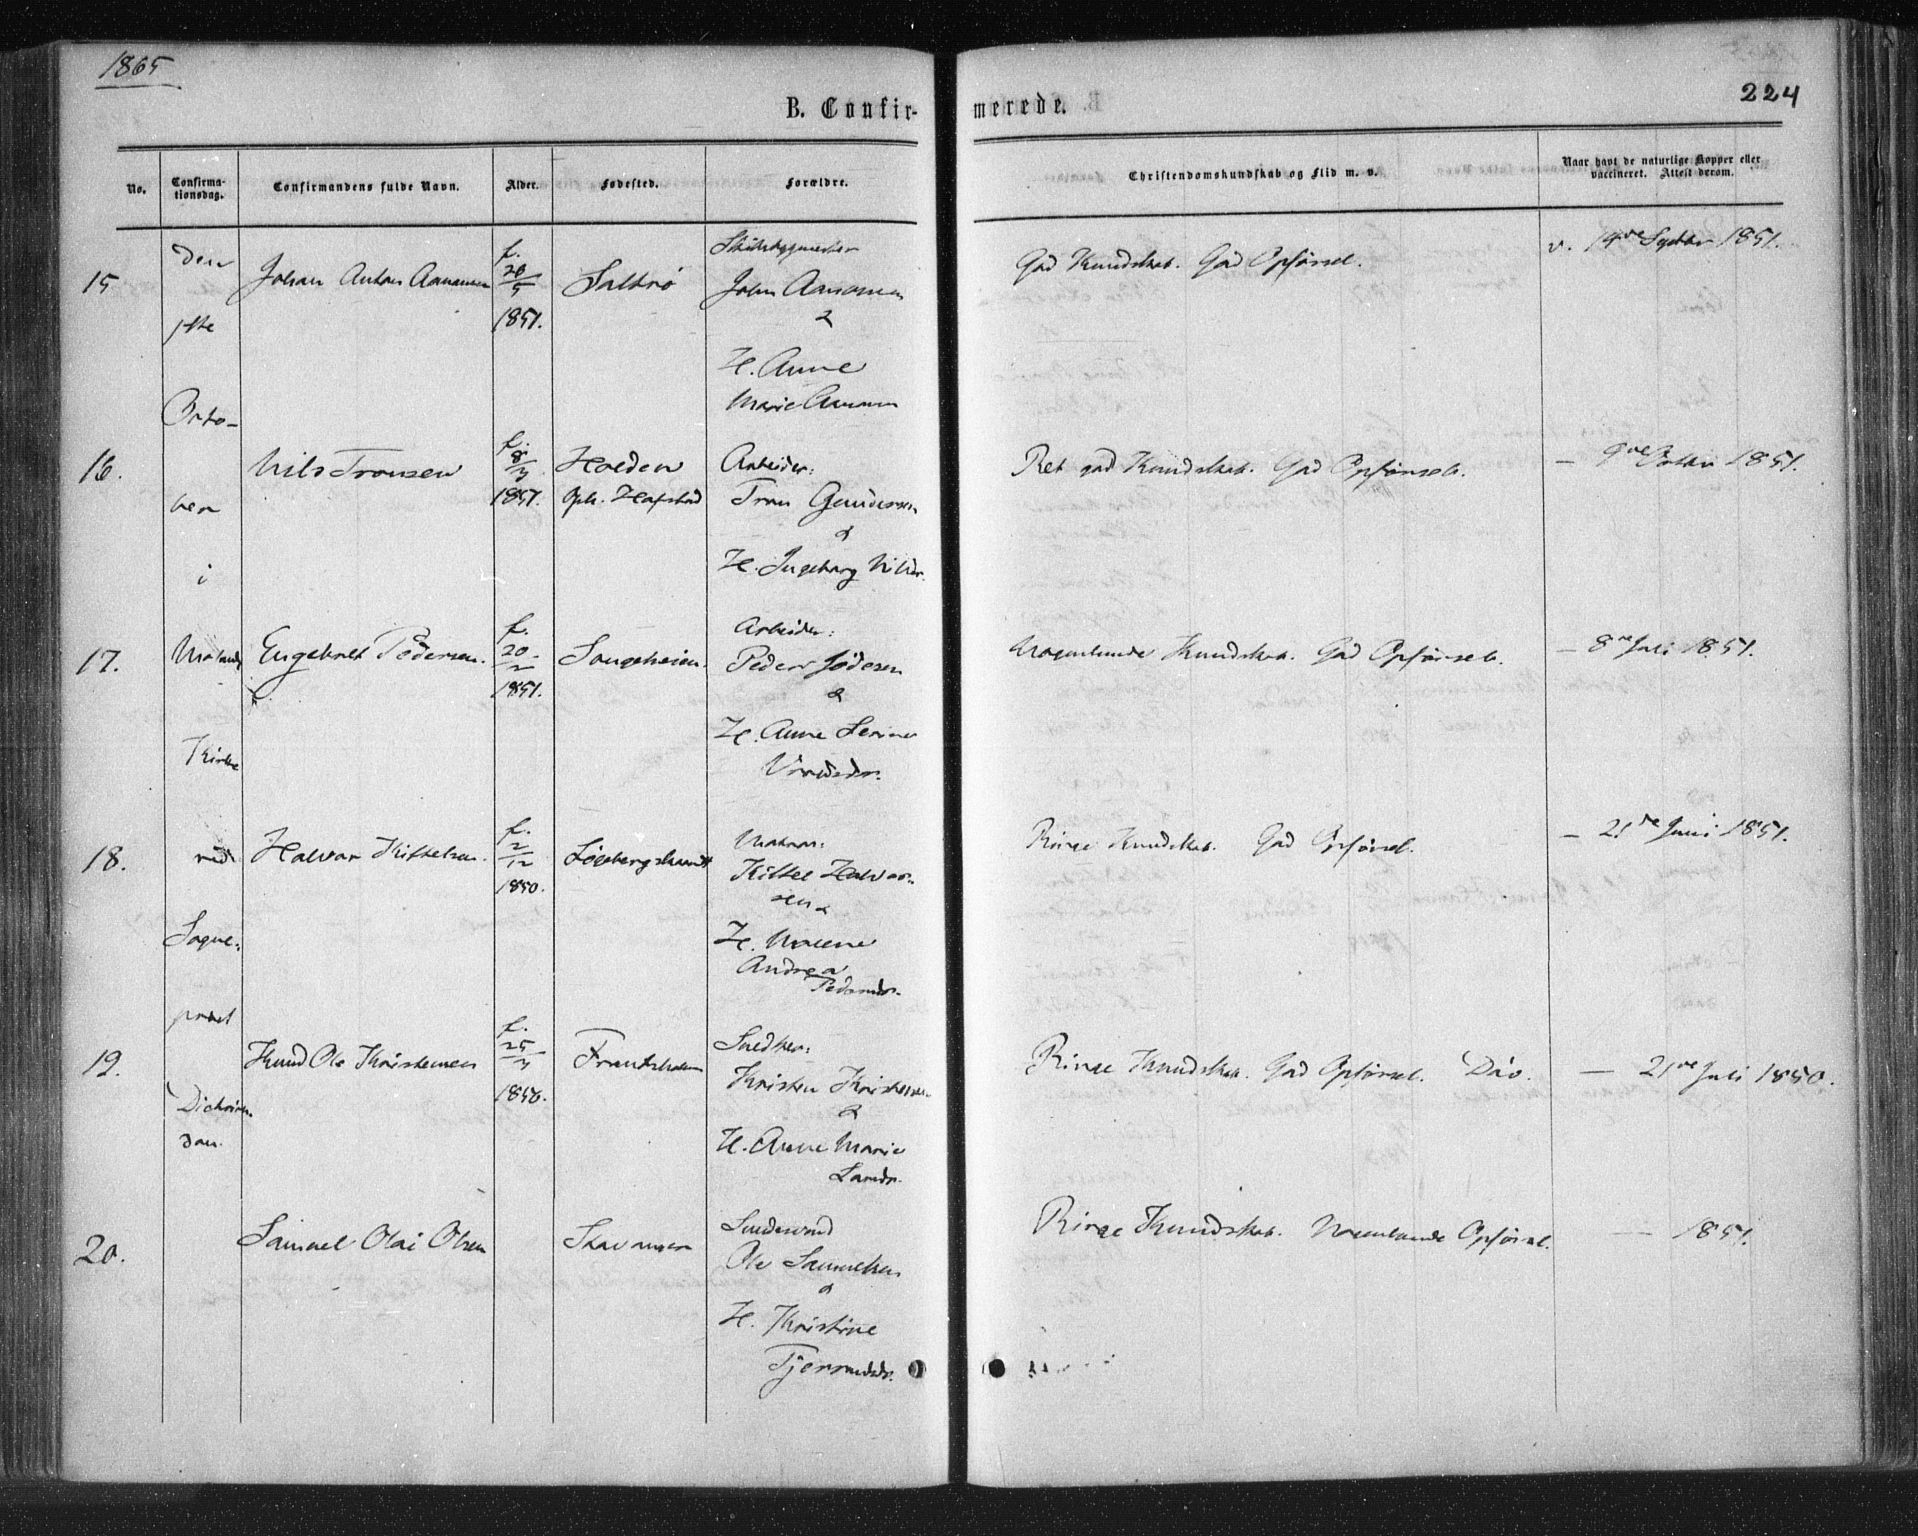 1865
224
B. Confir-
merede.
No.
Confirma-
tionsdag.
Confirmandens fulde Navn.
Alder.
Fødested.
Forældre.
Christendomskundskab og Flid m. v.
Naar havt de naturlige Kopper eller
vaccineret. Attest derom.
den
1ste
Octo-
ber
i
Molands
Kirke
ved
Sogne-
præst
Dichrinn
dan.
15
Johan Anton Aanansen
f.
28/5
1851.
Saltrø
Skibsbygmester
John Aanonsen
&
H. Anne
Marie Aanonsen
God Kundskab. God Opførsel.
v. 19de Septbr 1851.
16.
Nils Tronsen
f.
8/3
1851.
Holden
Oph. Hafstad
Arbeider:
Tron Gundersen
&
H. Ingeborg Nilsdr.
Ret god Kundskab. God Opførsel.
— 9de Octbr 1851.
17.
Engebret Pedersen.
f.
20/2
1851.
Songeheien.
Arbeider:
Peder
&
H. Anne Serine
Nogenlunde Kundskab. God Opførsel.
— 8de Juli 1851.
18.
Halvor Kittelsen.
f.
2/12
1850.
Matros:
Kittel Halvor-
sen &
H. Maren
Andrea
Pedersdr.
Ringe Kundskab. God Opførsel.
— 21de Juni 1851.
19.
Knud Ole Kristensen
f.
25/3
1850.
Frantsholmen
Snedker:
Kristen Kristensen
&
H. Anne Marie
Larsdr.
Ringe Kundskab. God Opførsel. Døv.
— 21de Juli 1850.
20.
Samuel Olai Olsen
Stavanger
Ole Samuelsen
&
H. Kristine
Ringe Kundskab. Nogenlunde Opførsel.
— 1851.